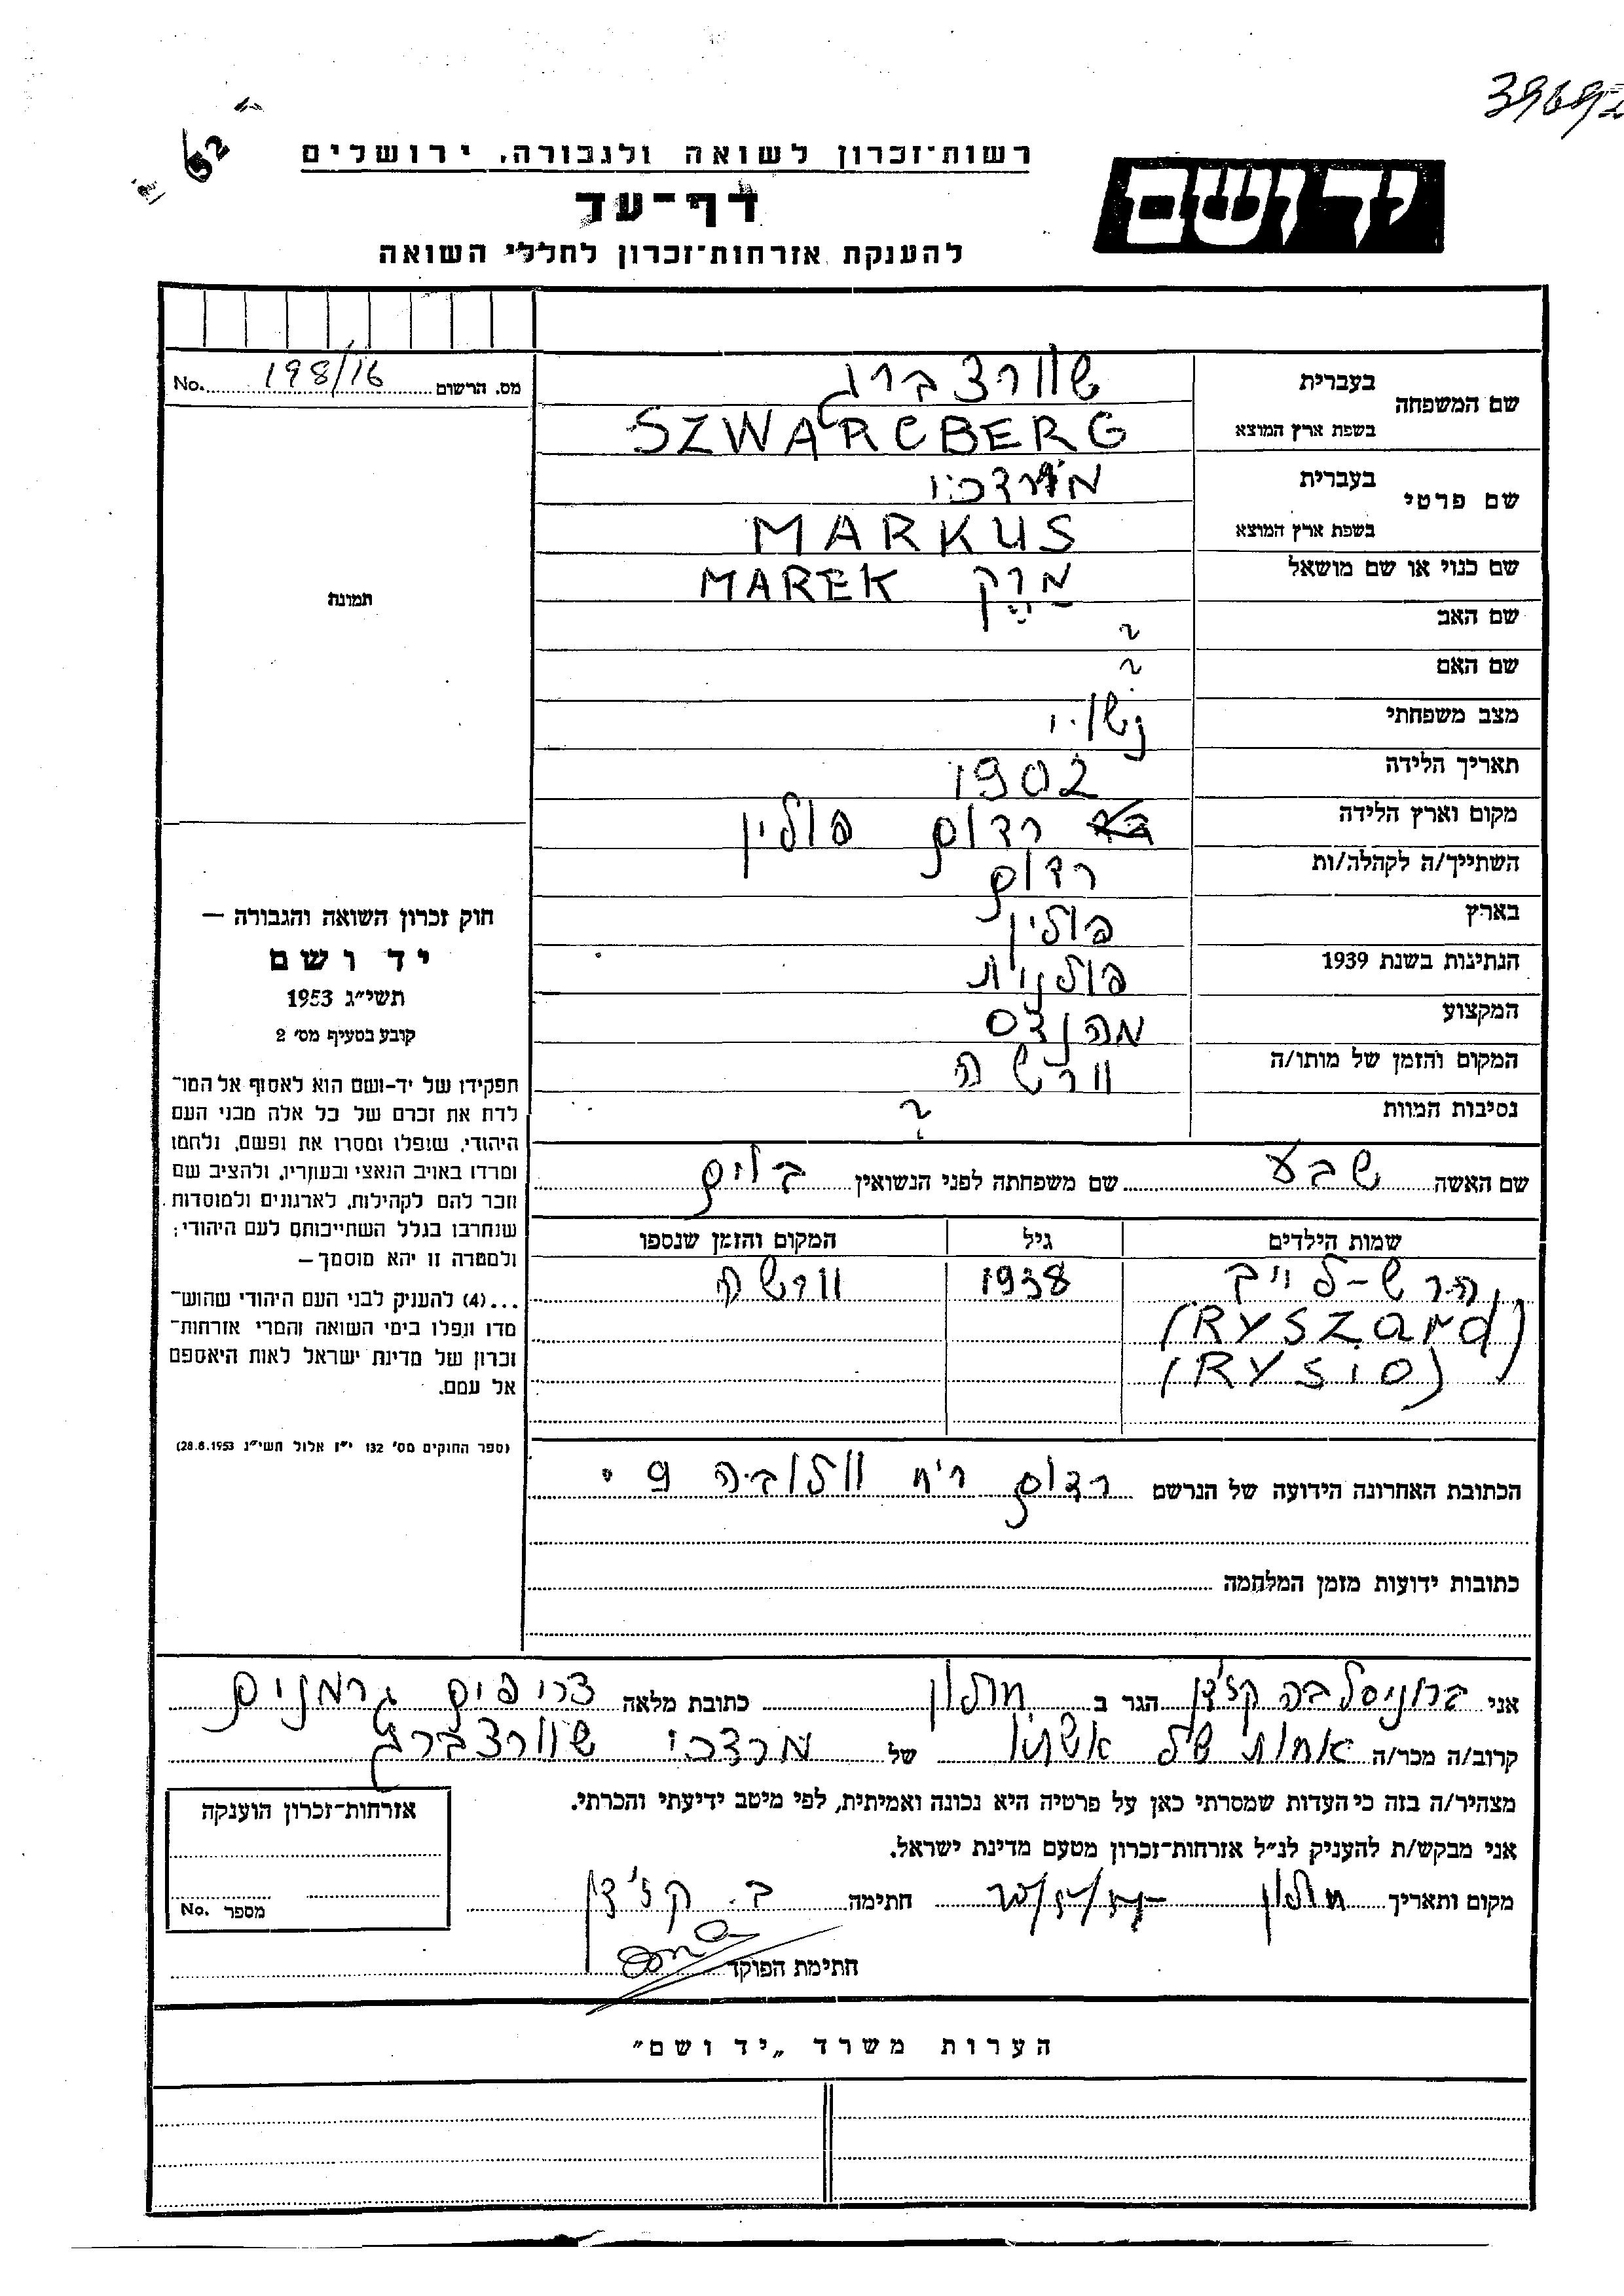 רשות־זכרון לשואה ולגבורה, ירושלים
יד ושם
דף־עד
להענקת אזרחות־זכרון לחללי השואה
מס. הרשום 198/16 No.
שם המשפחה
בעברית שוורצברג
בשפת ארץ המוצא SZWARCBERG
שם פרטי
בעברית מורדכי
בשפת ארץ המוצא MARKUS
שם כנוי או שם מושאל מרק MAREK
שם האב ?
שם האם ?
מצב משפחתי נשוי
תאריך הלידה 1902
מקום וארץ הלידה רדום פולין
השתייך/ה לקהלה/ות רדום
בארץ פולין
הנתינות בשנת 1939 פולנית
המקצוע מהנדס
המקום והזמן של מותו/ה וורשה
נסיבות המוות ?
שם האשה שבע שם משפחתה לפני הנשואין בלום
שמות הילדים גיל המקום והזמן שנספו
הרש-לייב 1938 וורשה
(RYSZARD)
(RYSIO)
הכתובת האחרונה הידועה של הנרשם רדום רח' וולובה 9
כתובות ידועות מזמן המלחמה
תמונה
חוק זכרון השואה והגבורה —
יד ושם
תשי״ג 1953
קובע בסעיף מס׳ 2
תפקידו של יד-ושם הוא לאסוף אל המו־
לדת את זכרם של כל אלה מבני העם
היהודי, שנפלו ומסרו את נפשם, נלחמו
ומרדו באויב הנאצי ובעוזריו, ולהציב שם
וזכר להם לקהילות, לארגונים ולמוסדות
שנחרבו בגלל השתייכותם לעם היהודי;
ולמטרה זו יהא מוסמך—
...(4) להעניק לבני העם היהודי שהוש־
מדו ונפלו בימי השואה והמרי אזרחות־
זכרון של מדינת ישראל לאות היאספם
אל עמם.
(ספר החוקים מס׳ 132 י״ז אלול תשי״ג 28.8.1953)
אני ברוניסלבה קז'דן הגר ב חולון כתובת מלאה צריפים גרמנים
קרוב/ה מכר/ה אחות של אשתו של מרדכי שוורצברג
מצהיר/ה בזה כי העדות שמסרתי כאן על פרטיה היא נכונה ואמיתית, לפי מיטב ידיעתי והכרתי.
אני מבקש/ת להעניק לנ״ל אזרחות־זכרון מטעם מדינת ישראל.
מקום ותאריך חולון חתימה ב. קז'דן
חתימת הפוקד
אזרחות־זכרון הוענקה
מספר No.
הערות משרד „יד ושם״